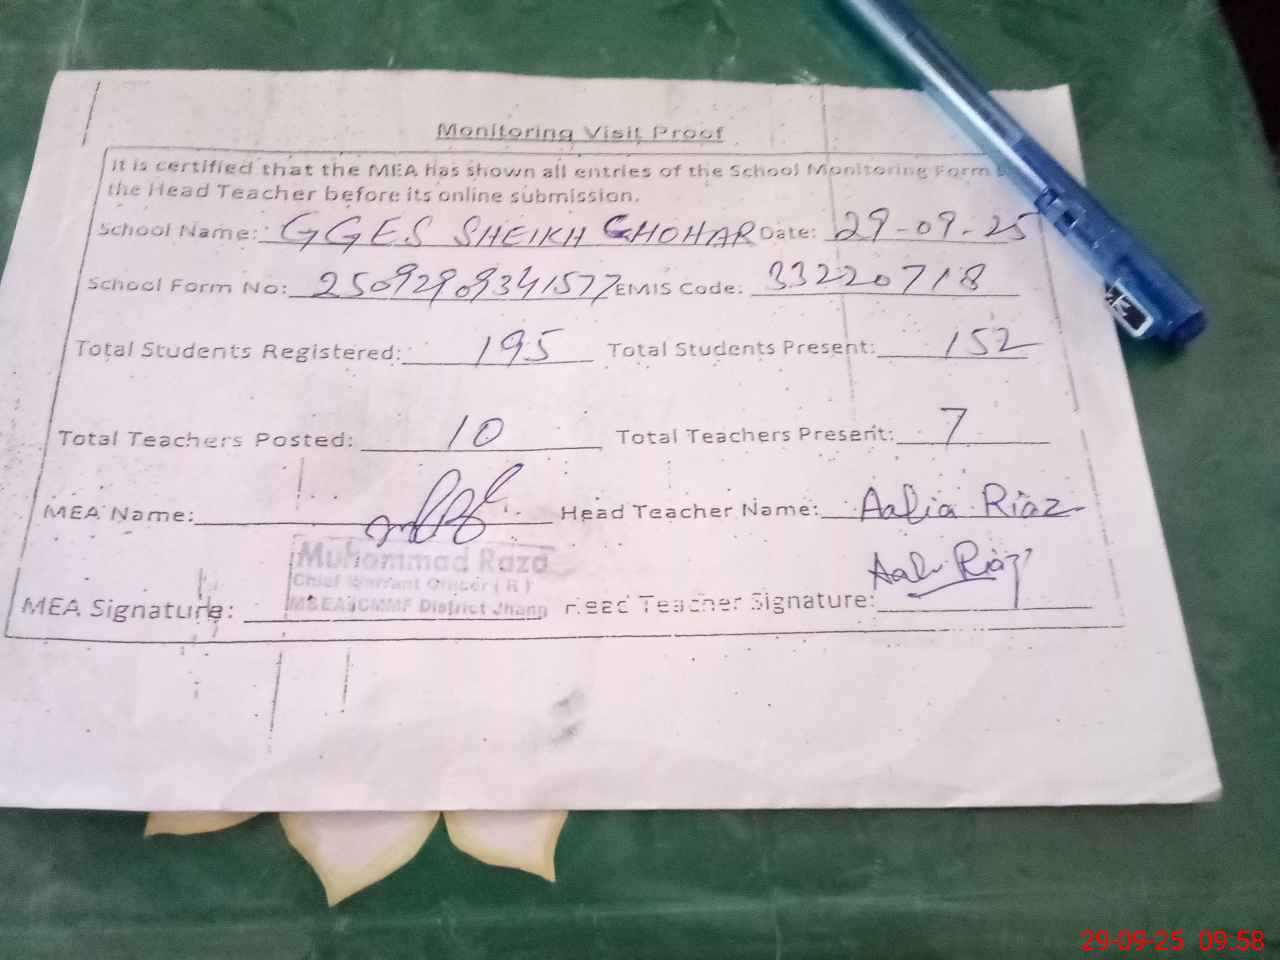 Monitoring Visit Proof
It is certified that the MEA has shown all entries of the School Monitoring Form
the Head Teacher before its online submission.
School Name: GGES SHEIKH CHOHAR Date: 29-09-25
School Form No: 25092909341577 EMIS Code: 33220718
Total Students Registered: 195 Total Students Present: 152
Total Teachers Posted: 10 Total Teachers Present: 7
MEA Name: Head Teacher Name: Aalia Riaz
Muhammad Raza
Chief Warrant Officer (R)
MEA Signature: M&EA3CMMF District Jhang Head Teacher Signature: Aalia Riaz
29-09-25 09:58